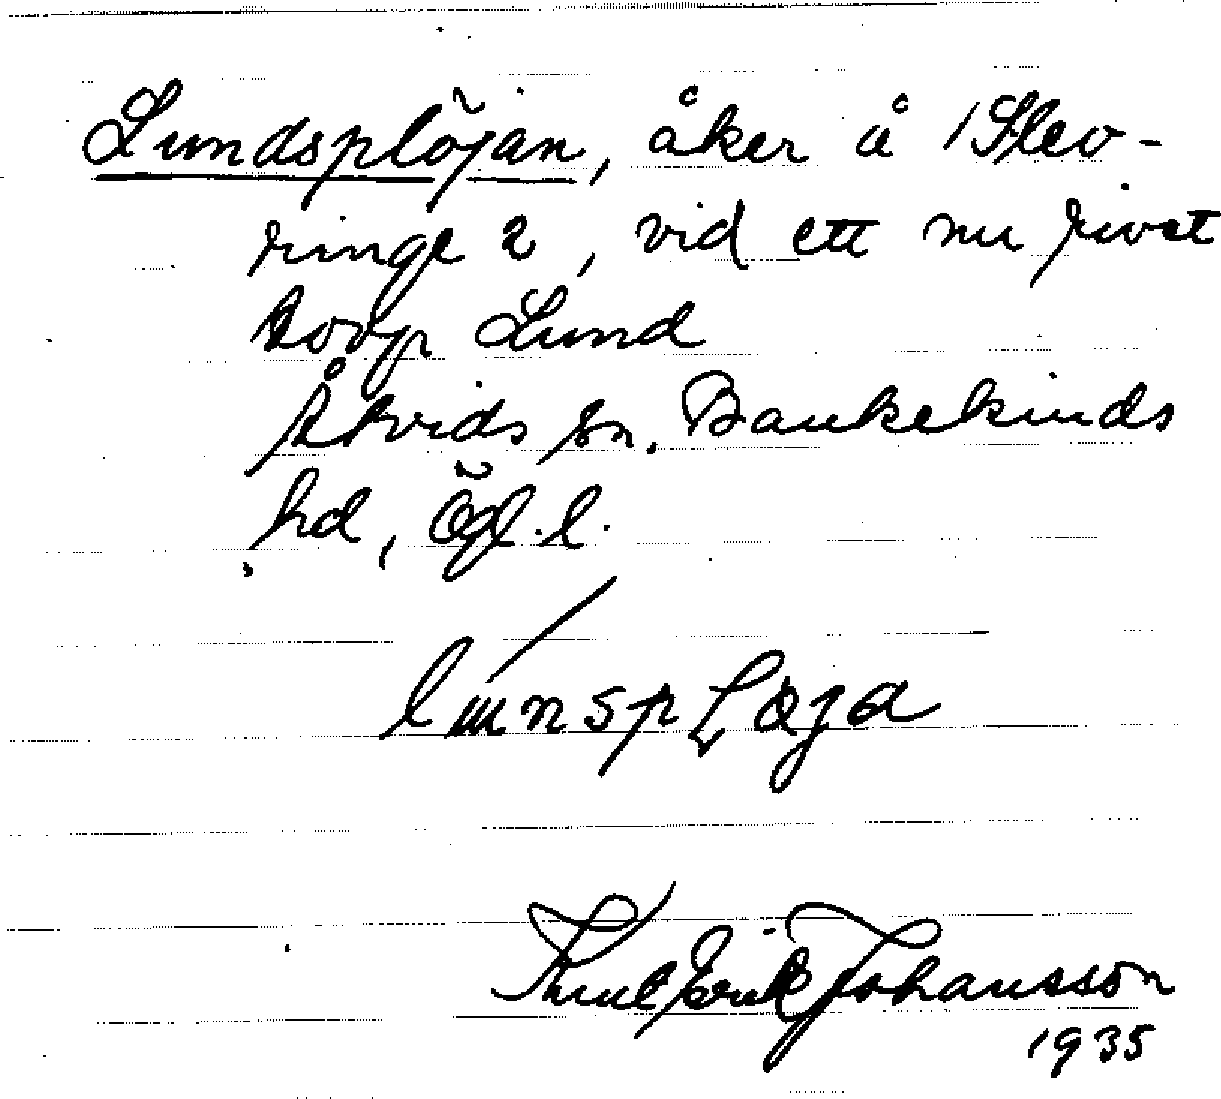 Lundsplöjan, åker å 1 Slev-
ringe 2, vid ett nu rivet
torp Lund
Åtvids sn. Bankekinds
hd, Ögl. l.
Knut Erik Johansson
1935